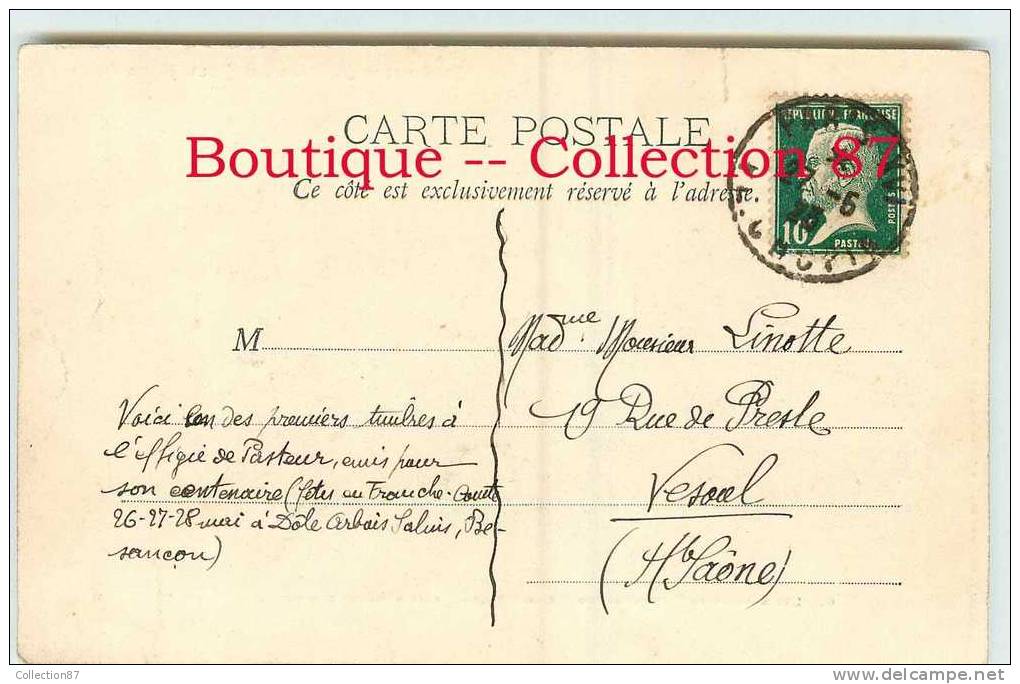 CARTE POSTALE
Boutique -- Collection 87
Ce côté est exclusivement réservé à l'adresse.
REPUBLIQUE FRANÇAISE
POSTES
10 PASTEUR
M
Mad.me Monsieur Linotte
19 Rue de Presle
Vesoul
(Hte Saône)
Voici l'un des premiers timbres à
l'éffigie de Pasteur, émis pour
son centenaire (fêtes en Franche-Comté
26-27-28 mai à Dôle Arbois Salins, Be-
sançon)
Collection87
www.delcampe.net